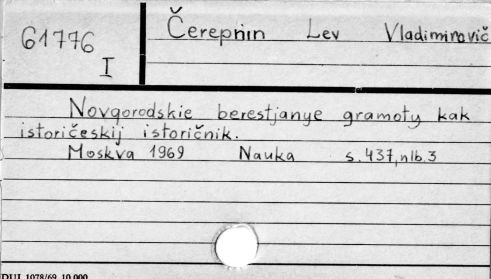 61776
I
Čerepnin Lev Vladimirovič
Novgorodskie berestjanye gramoty kak
istoričeskij istoričnik.
Moskva 1969 Nauka s. 437, nlb. 3
DUJ 1078/69 10 000